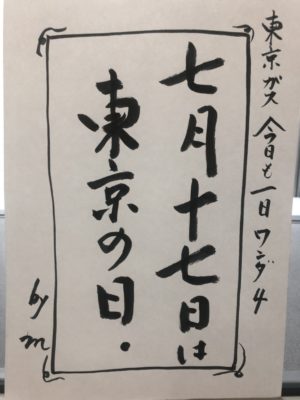 東京ガス 今日も一日ワンダ4
七月十七日は
東京の日.
by m